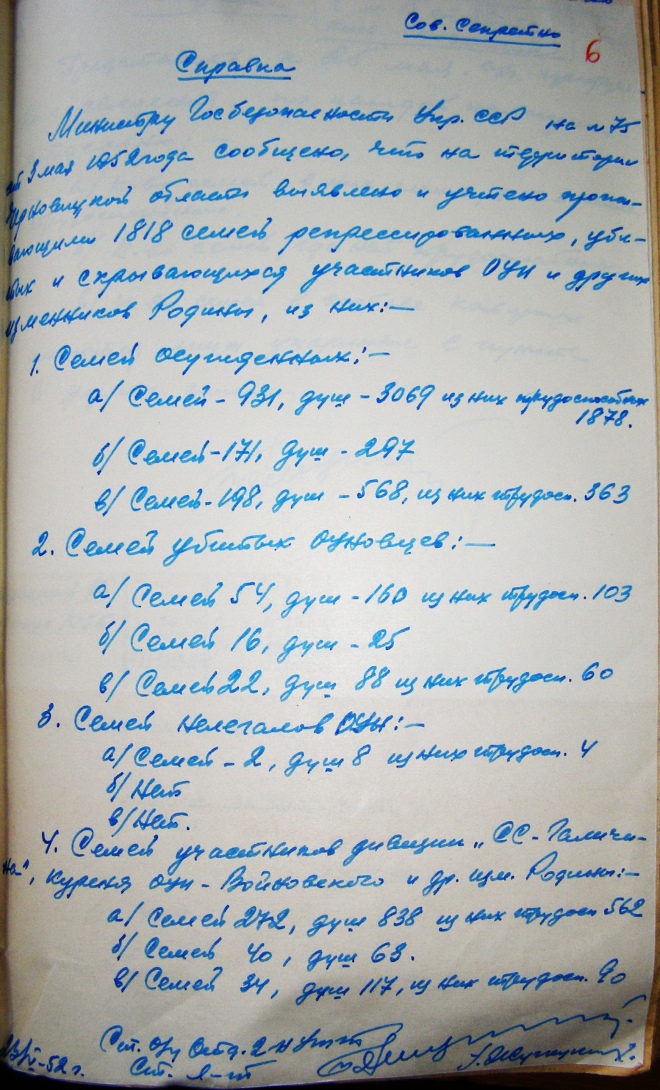 Сов. Секретно
6
Справка
Министру Госбезопасности Укр. ССР на №75
от 9 мая 1952 года сообщено, что на территории
Черновицкой области выявлено и учтено прожи-
вающими 1818 семей репрессированных, уби-
тых и скрывающихся участников ОУН и других
изменников Родины, из них:—
1. Семей осужденных:—
а/ Семей - 931, душ - 3069 из них трудоспособных
1878.
б/ Семей - 171, душ - 297
в/ Семей - 198, душ - 568, из них трудосп. 363
2. Семей убитых оуновцев:—
а/ Семей 54, душ - 160 из них трудосп. 103
б/ Семей 16, душ - 25
в/ Семей 22, душ 88 из них трудосп. 60
3. Семей нелегалов ОУН:—
а/ Семей - 2, душ 8 из них трудосп. 4
б/ Нет
в/ Нет.
4. Семей участников дивизии „СС - Галичи-
на", куреня оун - Войновского и др. изм. Родины:—
а/ Семей 272, душ 838 из них трудосп 562
б/ Семей 40, душ 63.
в/ Семей 34, душ 117, из них трудосп. 90
-52 г.
Ст. О/у Отд. 2-Н
Ст. Л-нт